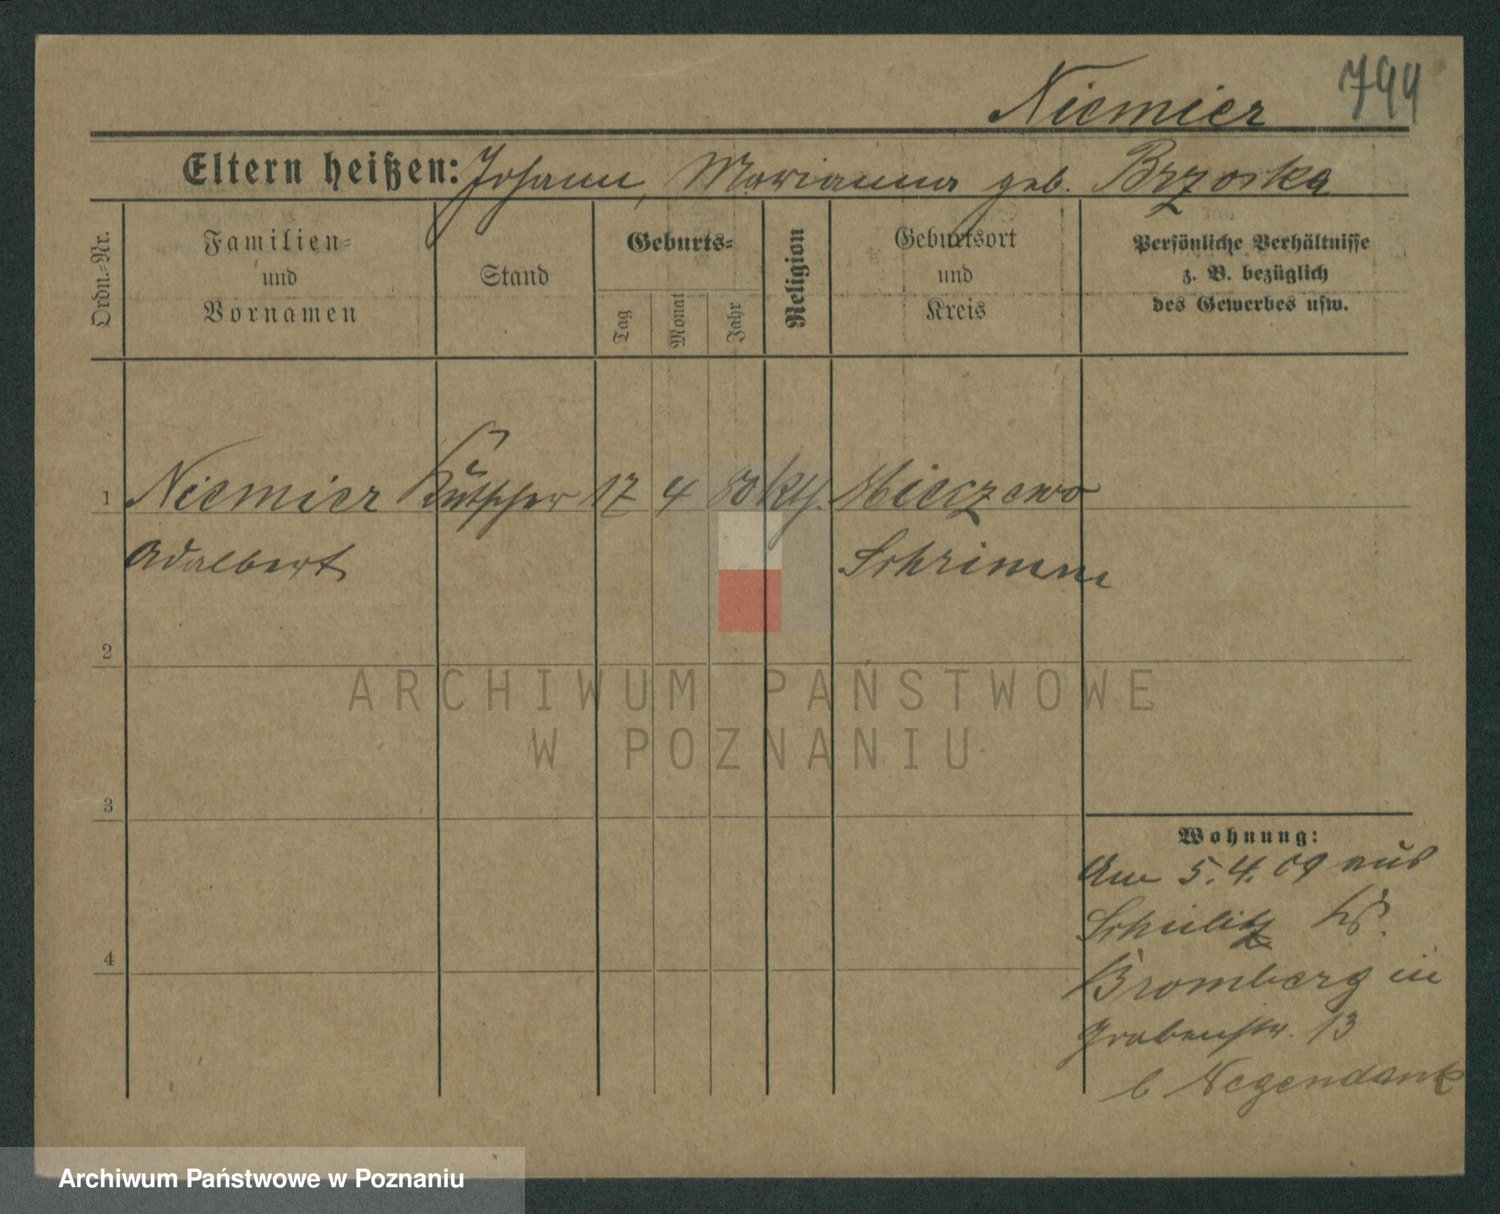 Niemier 799
Eltern heißen: Johann, Marianna geb. Brzoska
Ordn.-Nr.
Familien-
und
Vornamen
Stand
Geburts-
Tag
Monat
Jahr
Religion
Geburtsort
und
Kreis
Persönliche Verhältnisse
z. B. bezüglich
des Gewerbes usw.
1 Niemier Kutscher 17 4 80 kth. Mieczewo
Adalbert Schrimm
2
3
4
Wohnung:
Am 5.4.09 aus
Schulitz
Bromberg in
Grabenstr. 13
b Negendank
ARCHIWUM PAŃSTWOWE
W POZNANIU
Archiwum Państwowe w Poznaniu